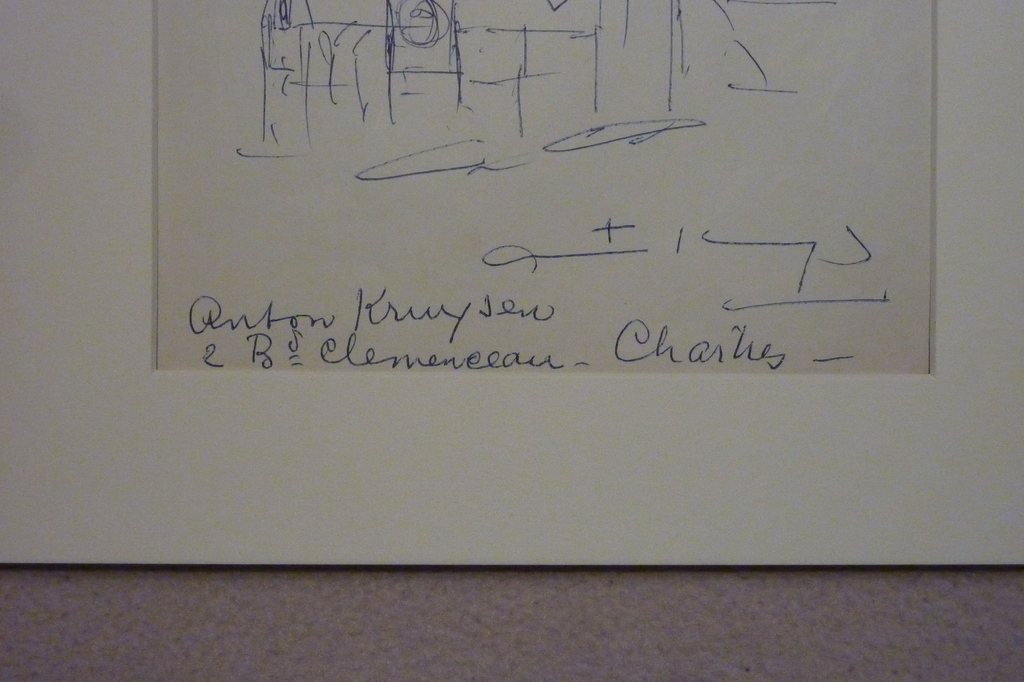 Anton Kruysen
2 Bd Clemenceau - Chartres -